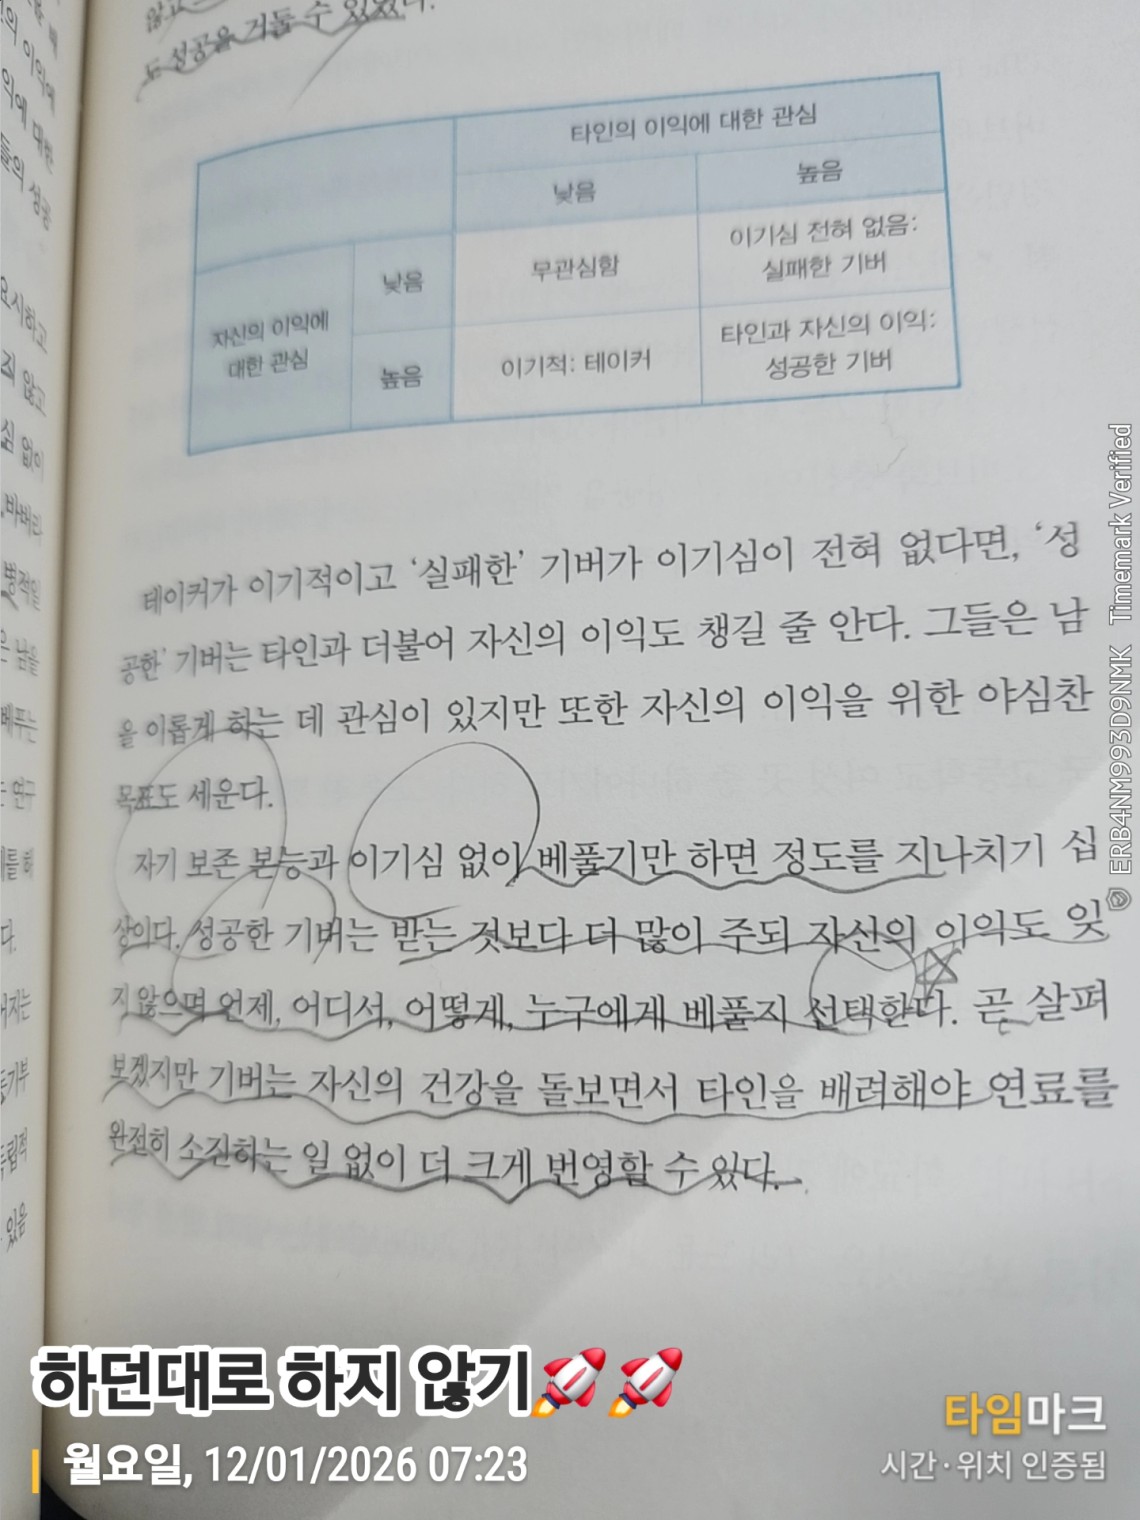 도 성공을 거둘 수 있었다.
타인의 이익에 대한 관심
낮음
높음
자신의 이익에
대한 관심
낮음
무관심함
이기심 전혀 없음:
실패한 기버
높음
이기적: 테이커
타인과 자신의 이익:
성공한 기버
테이커가 이기적이고 ‘실패한’ 기버가 이기심이 전혀 없다면, ‘성
공한’ 기버는 타인과 더불어 자신의 이익도 챙길 줄 안다. 그들은 남
을 이롭게 하는 데 관심이 있지만 또한 자신의 이익을 위한 야심찬
목표도 세운다.
자기 보존 본능과 이기심 없이 베풀기만 하면 정도를 지나치기 십
상이다. 성공한 기버는 받는 것보다 더 많이 주되 자신의 이익도 잊
지 않으며 언제, 어디서, 어떻게, 누구에게 베풀지 선택한다. 곧 살펴
보겠지만 기버는 자신의 건강을 돌보면서 타인을 배려해야 연료를
완전히 소진하는 일 없이 더 크게 번영할 수 있다.
하던대로 하지 않기🚀🚀
월요일, 12/01/2026 07:23
타임마크
시간·위치 인증됨
ERB4NM993D9NMK Timemark Verified